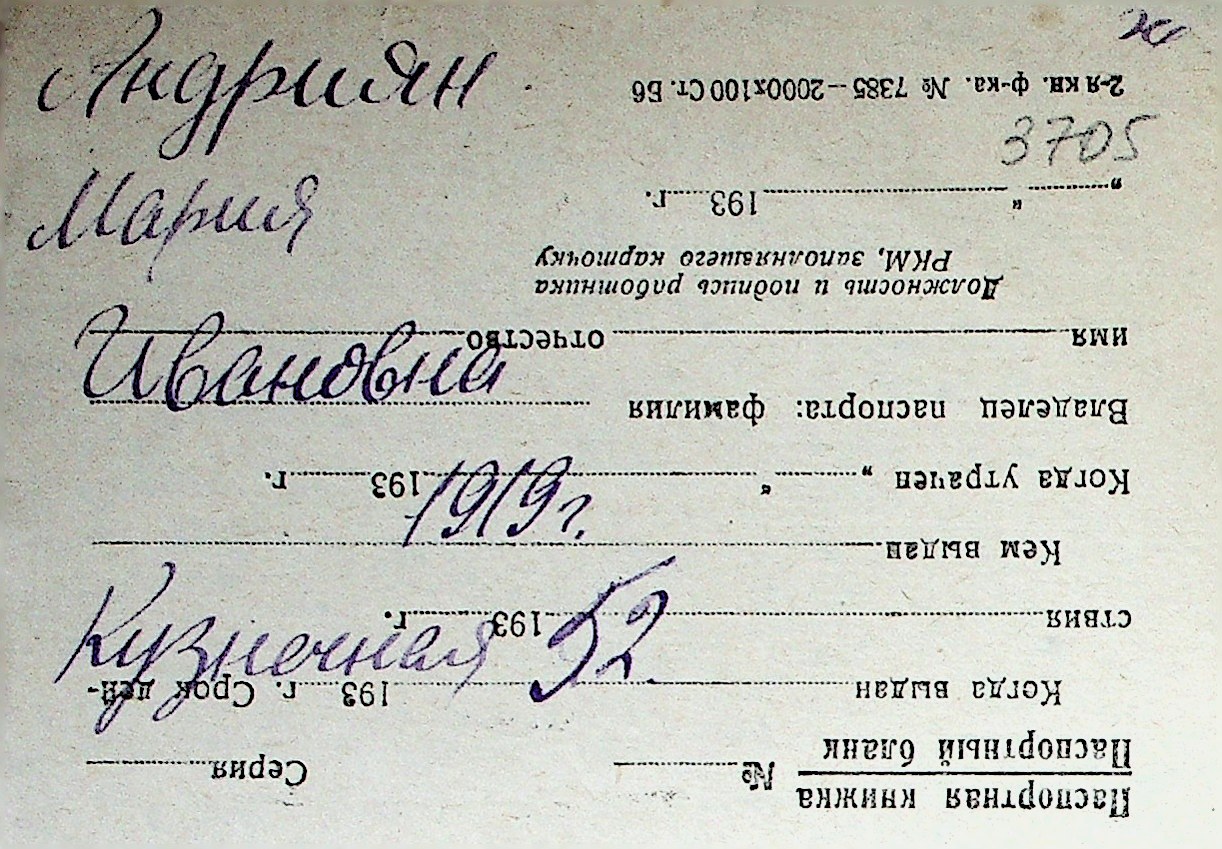 Андриян
Мария
Ивановна
1919 г.
Кузнечная 52
3705
Паспортная книжка
Паспортный бланк
№ Серия
Когда выдан 193 г. Срок дей-
ствия 193 г.
Кем выдан
Когда утрачен „ “ 193 г.
Владелец паспорта: фамилия
имя отчество
Должность и подпись работника
РКМ, заполнявшего карточку
„ “ 193 г.
2-я кв. ф-ка. № 7385—2000х100 Ст. Б6